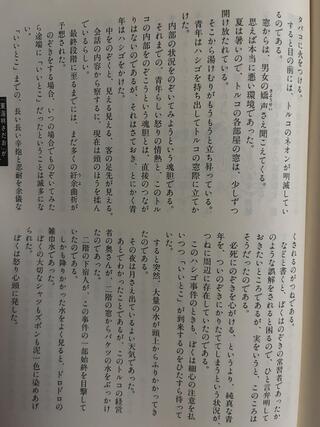 タバコに火をつける。
すると目の前には、トルコのネオンが明滅してい
るのである。
窓からは、男女の嬌声さえ聞こえてくる。
思えば本当に悪い環境であった。
夏は暑いので、トルコの各部屋の窓は、少しずつ
開け放たれている。
そこから湯けむりがもうもうと立ち昇っている。
青年はハシゴを持ち出してトルコの窓際に立てか
けた。
内部の状況をのぞいてみようという魂胆である。
それまでの、青年らしい怒りの情熱と、このトル
コの内部をのぞこうという魂胆とは、直接のつなが
りはないのであるが、それはさておき、とにかく青
年はハシゴをかけた。
中をのぞくと、見える見える、客の足先が見える。
会話の内容から察するに、現在は頭のほうを揉ん
でいるらしい。
最終段階に至るまでには、まだ多くの紆余曲折が
予想された。
のぞきをする場合、いつの場合でものぞいてみた
ら途端に「いいとこ」だったということは滅多にな
い。
「いいとこ」までの、長い長い辛抱と忍耐を余儀な
東海林さだおが
くされるのがつねである。
などと書くと、ぼくはのぞきの常習者であったか
のような誤解をされると困るので、ひと言弁明して
おきたいところであるが、実をいうと、このころは
そうだったのである。
必死にのぞきを心がける、というより、純真な青
年を、ついのぞきにかりたててしまうという状況が、
つねに周辺に存在していたのである。
このハシゴ事件のときも、ぼくは細心の注意を払
いつつ、「いいとこ」が到来するのをひたすら待って
いた。
すると突然、大量の水が頭上からふりかかってき
たのである。
その夜は月さえ出ているよい天気であった。
あとでわかったことであるが、このトルコの経営
者の奥さんが、二階の窓からバケツの水をぶっかけ
たのであった。
二階の住人が、この事件の一部始終を目撃して
いたのである。
しかも降りかかった水をよく見ると、ドロドロの
雑巾水であった。
ぼくの大切なシャツもズボンも泥一色に染めあげ
られた。
ぼくは怒り心頭に発した。